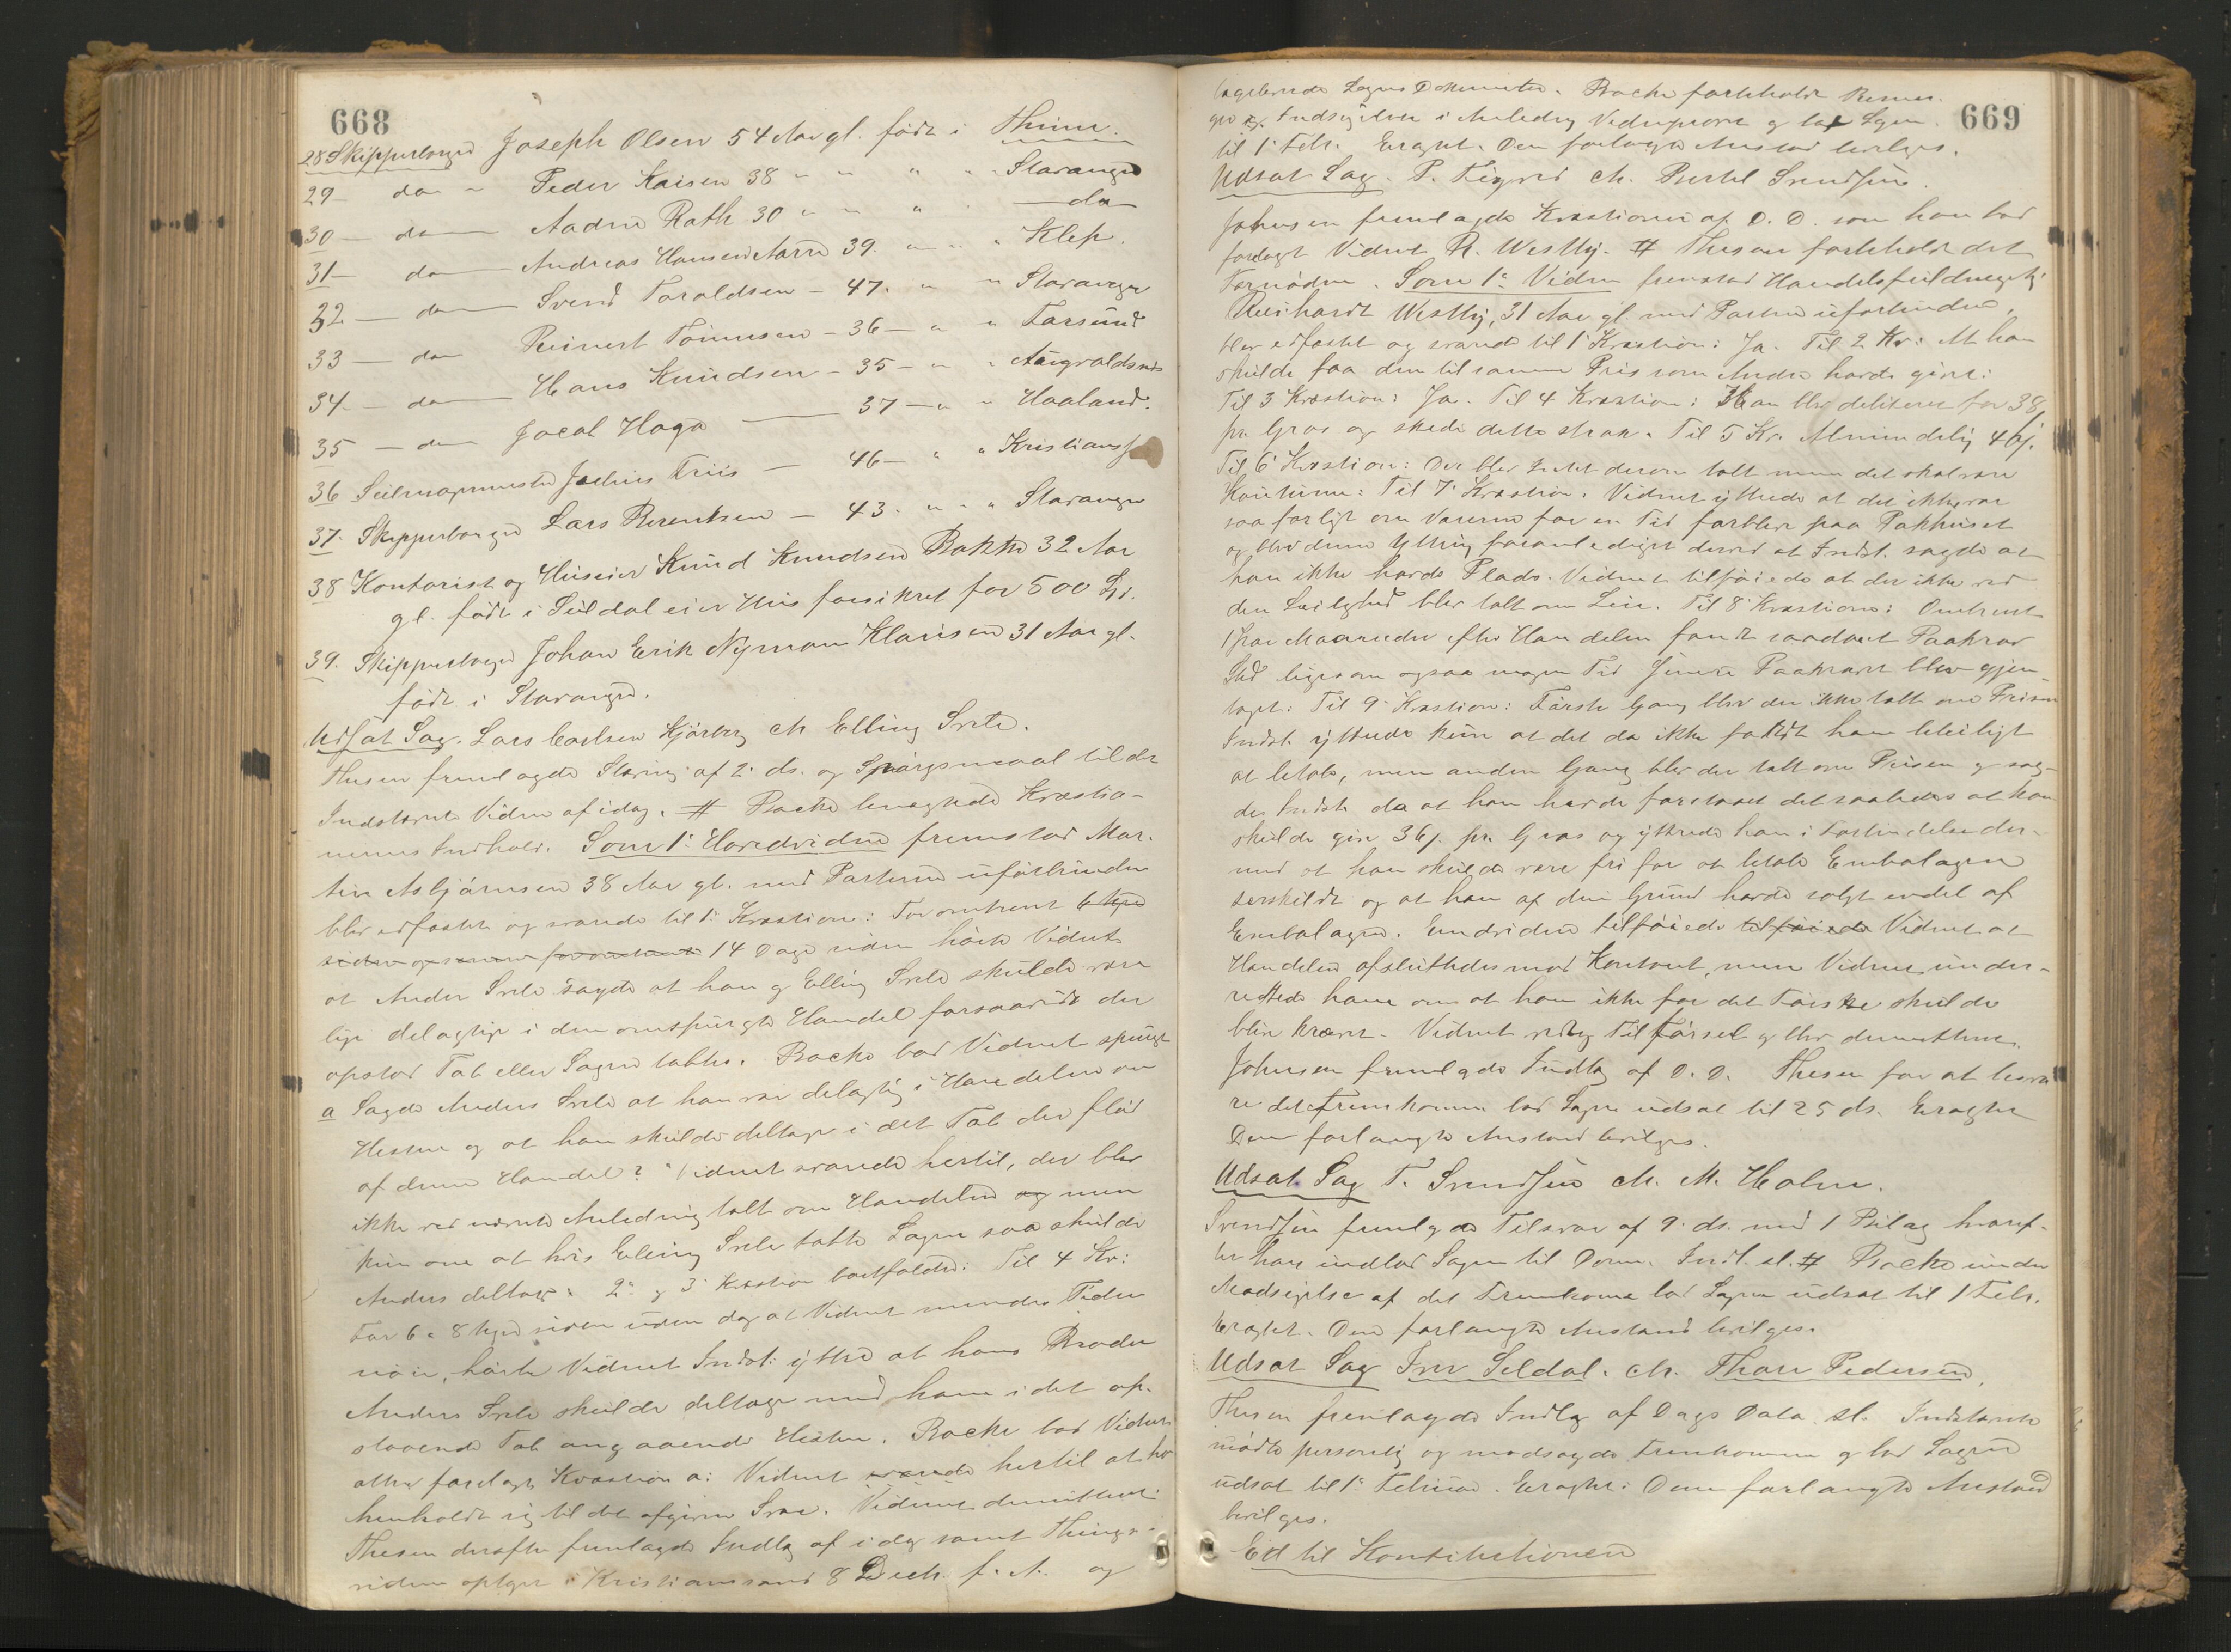 668
28 Skipperborger Joseph Olsen 54 Aar gl. født i Thime.
29 — do — Peder Kaisen 38 " " " " Stavanger
30 — do — Aadne Rath 30 " " " — do —
31 — do — Andreas Hansen Aarre 39. " " " Klep.
32 — do — Svend Taraldsen — 47. " " Stavanger
33 — do Reinert Tønnesen — 36 — " " Farsund
34 — do — Hans Knudsen — 35 — " " Augvaldsnes
35 — do — Jacob Haga — 37 — " " Haaland.
36 Seilmagermester Jochus Friis — 46 — " " Kristianss
37. Skipperborger Lars Berentsen — 43. " " " Stavanger
38 Kontorist og Huseier Knud Knudsen Bakke 32 Aar
gl. født i Suldal eier Hus forsikret for 500 Sp.
39. Skipperborger Johan Erik Nyman Klausen 31 Aar gl.
født i Stavanger.
Udsat Sag. Lars Carlsen Kjørberg ctr Elling Svele.
Thesen fremlagde Stævning af 2. ds. og Spørgsmaal til de
Indstævnte Vidner af idag. # Backe benegtede Kvæstio-
nernes Indhold. Som 1. Hovedvidne fremstod Mar-
tin Asbjørnsen 38 Aar gl. med Parterne uforbunden
blev edfæstet og svarede til 1. Kvæstion: For omtrent 6 Uger
siden og senere 14 Dage siden hørte Vidnet
at Anders Svele sagde at han og Elling Svele skulde være
lige delagtige i den omspurgte Handel forsaavidt der
opstod Tab eller Sagen tabtes. Backe bad Vidnet spurgt
a Sagde Anders Svele at han var delagtig i Handelen om
Hesten og at han skulde deltage i det Tab der flød
af denne Handel? Vidnet svarede hertil, der blev
ikke ved nævnte Anledning talt om Handelen og men
kun om at hvis Elling Svele tabte Sagen saa skulde
Anders deltage. 2. og 3. Kvæstion bortfalder: Til 4 Kv:
For 6 a 8 Uger siden uden dog at Vidnet mindes Tiden
nøie, hørte Vidnet Indst: yttre at hans Broder
Anders Svele skulde deltage med ham i det op-
staaende Tab angaaende Hesten. Backe bad Vidnet
atter forelagt Kvæstion a: Vidnet svarede hertil at han
henholdt sig til det afgivne Svar. Vidnet demitteret.
Thesen derefter fremlagde Indlæg af idag samt Things-
vidne optaget i Kristianssand 8 Decbr. f. A. og
669
begjerede Sagens Dokumenter. Backe forbeholdt
Indsigelser i Anledning Vidneprovet og lod Sagen
til 1. Febr. Eragtet. Den forlangte Anstand bevilges.
Udsat Sag. P. Tegner ctr. Bertel Svendsen.
Johnsen fremlagde Kvæstioner af D. D. som han bad
forelagt Vidnet R. Westby. # Thesen forbeholdt det
Fornødne. Som 1. Vidne fremstod Handelsfuldmægtig
Reinhardt Westby, 31 Aar gl. med Parterne uforbunden,
blev edfæstet og svarede til 1 Kvæstion: Ja. Til 2 Kv: At han
skulde faa den til samme Pris som Andre havde givet:
Til 3 Kvæstion: Ja. Til 4 Kvæstion: Han blev debiteret for 38 ƒ
pr. Gros og skede dette strax. Til 5 Kv. Almindelig 40ƒ.
Til 6 Kvæstion: Der blev Intet derom talt men det skal være
Kontume: Til 7. Kvæstion. Vidnet yttrede at det ikke var
saa farligt om Varerne for en Tid forblev paa Pakhuset
og blev denne Yttring foranlediget derved at Indst. sagde at
han ikke havde Plads. Vidnet tilføiede at der ikke ved
den Leilighed blev talt om Leie. Til 8. Kvæstion: Omtrent
1 par Maaneder efter Handelen fandt saadant Paakrav
Sted ligesom ogsaa nogen Tid senere Paakravet blev gjen-
taget: Til 9. Kvæstion: Første Gang blev der ikke talt om Prisen
Indst. yttrede kun at det da ikke faldt ham beleiligt
at betale, men anden Gang blev der talt om Prisen og sag-
de Indst. da at han havde forstaaet det saaledes at han
skulde give 36ƒ. pr. Gros og yttrede han i Forbindelse der-
med at han skulde være fri for at betale Embalagen
særskildt og at han af den Grund havde solgt endel af
Embalagen. Endvidere tilføiede tilføiede Vidnet at
Handelen afsluttedes mod Kontant, men Vidnet under-
rettede ham om at han ikke for det Første skulde
blive krævet. Vidnet vedtog Tilførsel og blev demitteret.
Johnsen fremlagde Indlæg af D. D. Thesen for at besva
re det Fremkomne lod Sagen udsat til 25 ds. Eragtet
Den forlangte Anstand bevilges.
Udsat Sag T. Svendsen ctr. M. Holm.
Svendsen fremlagde Tilsvar af 9. ds. med 1 Bilag hvoref-
ter han indlod Sagen til Dom. Indl. sl. # Backe under
Modsigelse af det Fremkomne lod Sagen udsat til 1 Febr.
Eragtet. Den forlangte Anstand bevilges.
Udsat Sag Iver Seldal. ctr. Thore Pedersen.
Thesen fremlagde Indlæg af Dags Dato sl. Indstævnte
mødte personlig og modsagde Fremkomne og lod Sagen
udsat til 1. Februar. Eragtet: Den forlangte Anstand
bevilges.
Ed til Konstitutionen